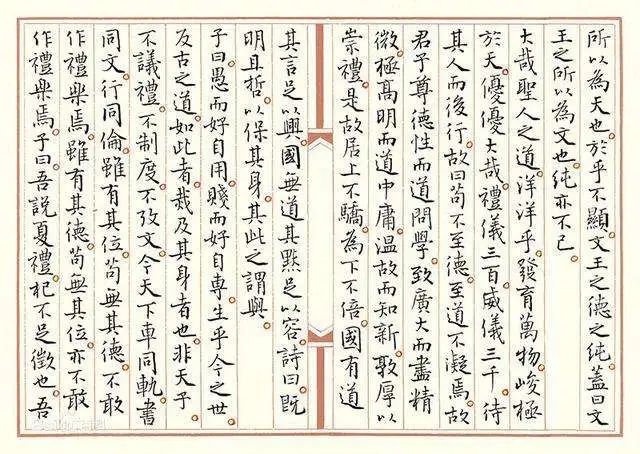 所以為天也於乎不顯文王之德之純蓋曰文
王之所以為文也純亦不已
大哉聖人之道洋洋乎發育萬物峻極
於天優優大哉禮儀三百威儀三千待
其人而後行故曰苟不至德至道不凝焉故
君子尊德性而道問學致廣大而盡精
微極高明而道中庸溫故而知新敦厚以
崇禮是故居上不驕為下不倍國有道
其言足以興國無道其默足以容詩曰既
明且哲以保其身其此之謂與
子曰愚而好自用賤而好自專生乎今之世
反古之道如此者烖及其身者也非天子
不議禮不制度不攷文今天下車同軌書
同文行同倫雖有其位苟無其德不敢
作禮樂焉雖有其德苟無其位亦不敢
作禮樂焉子曰吾說夏禮杞不足徵也吾